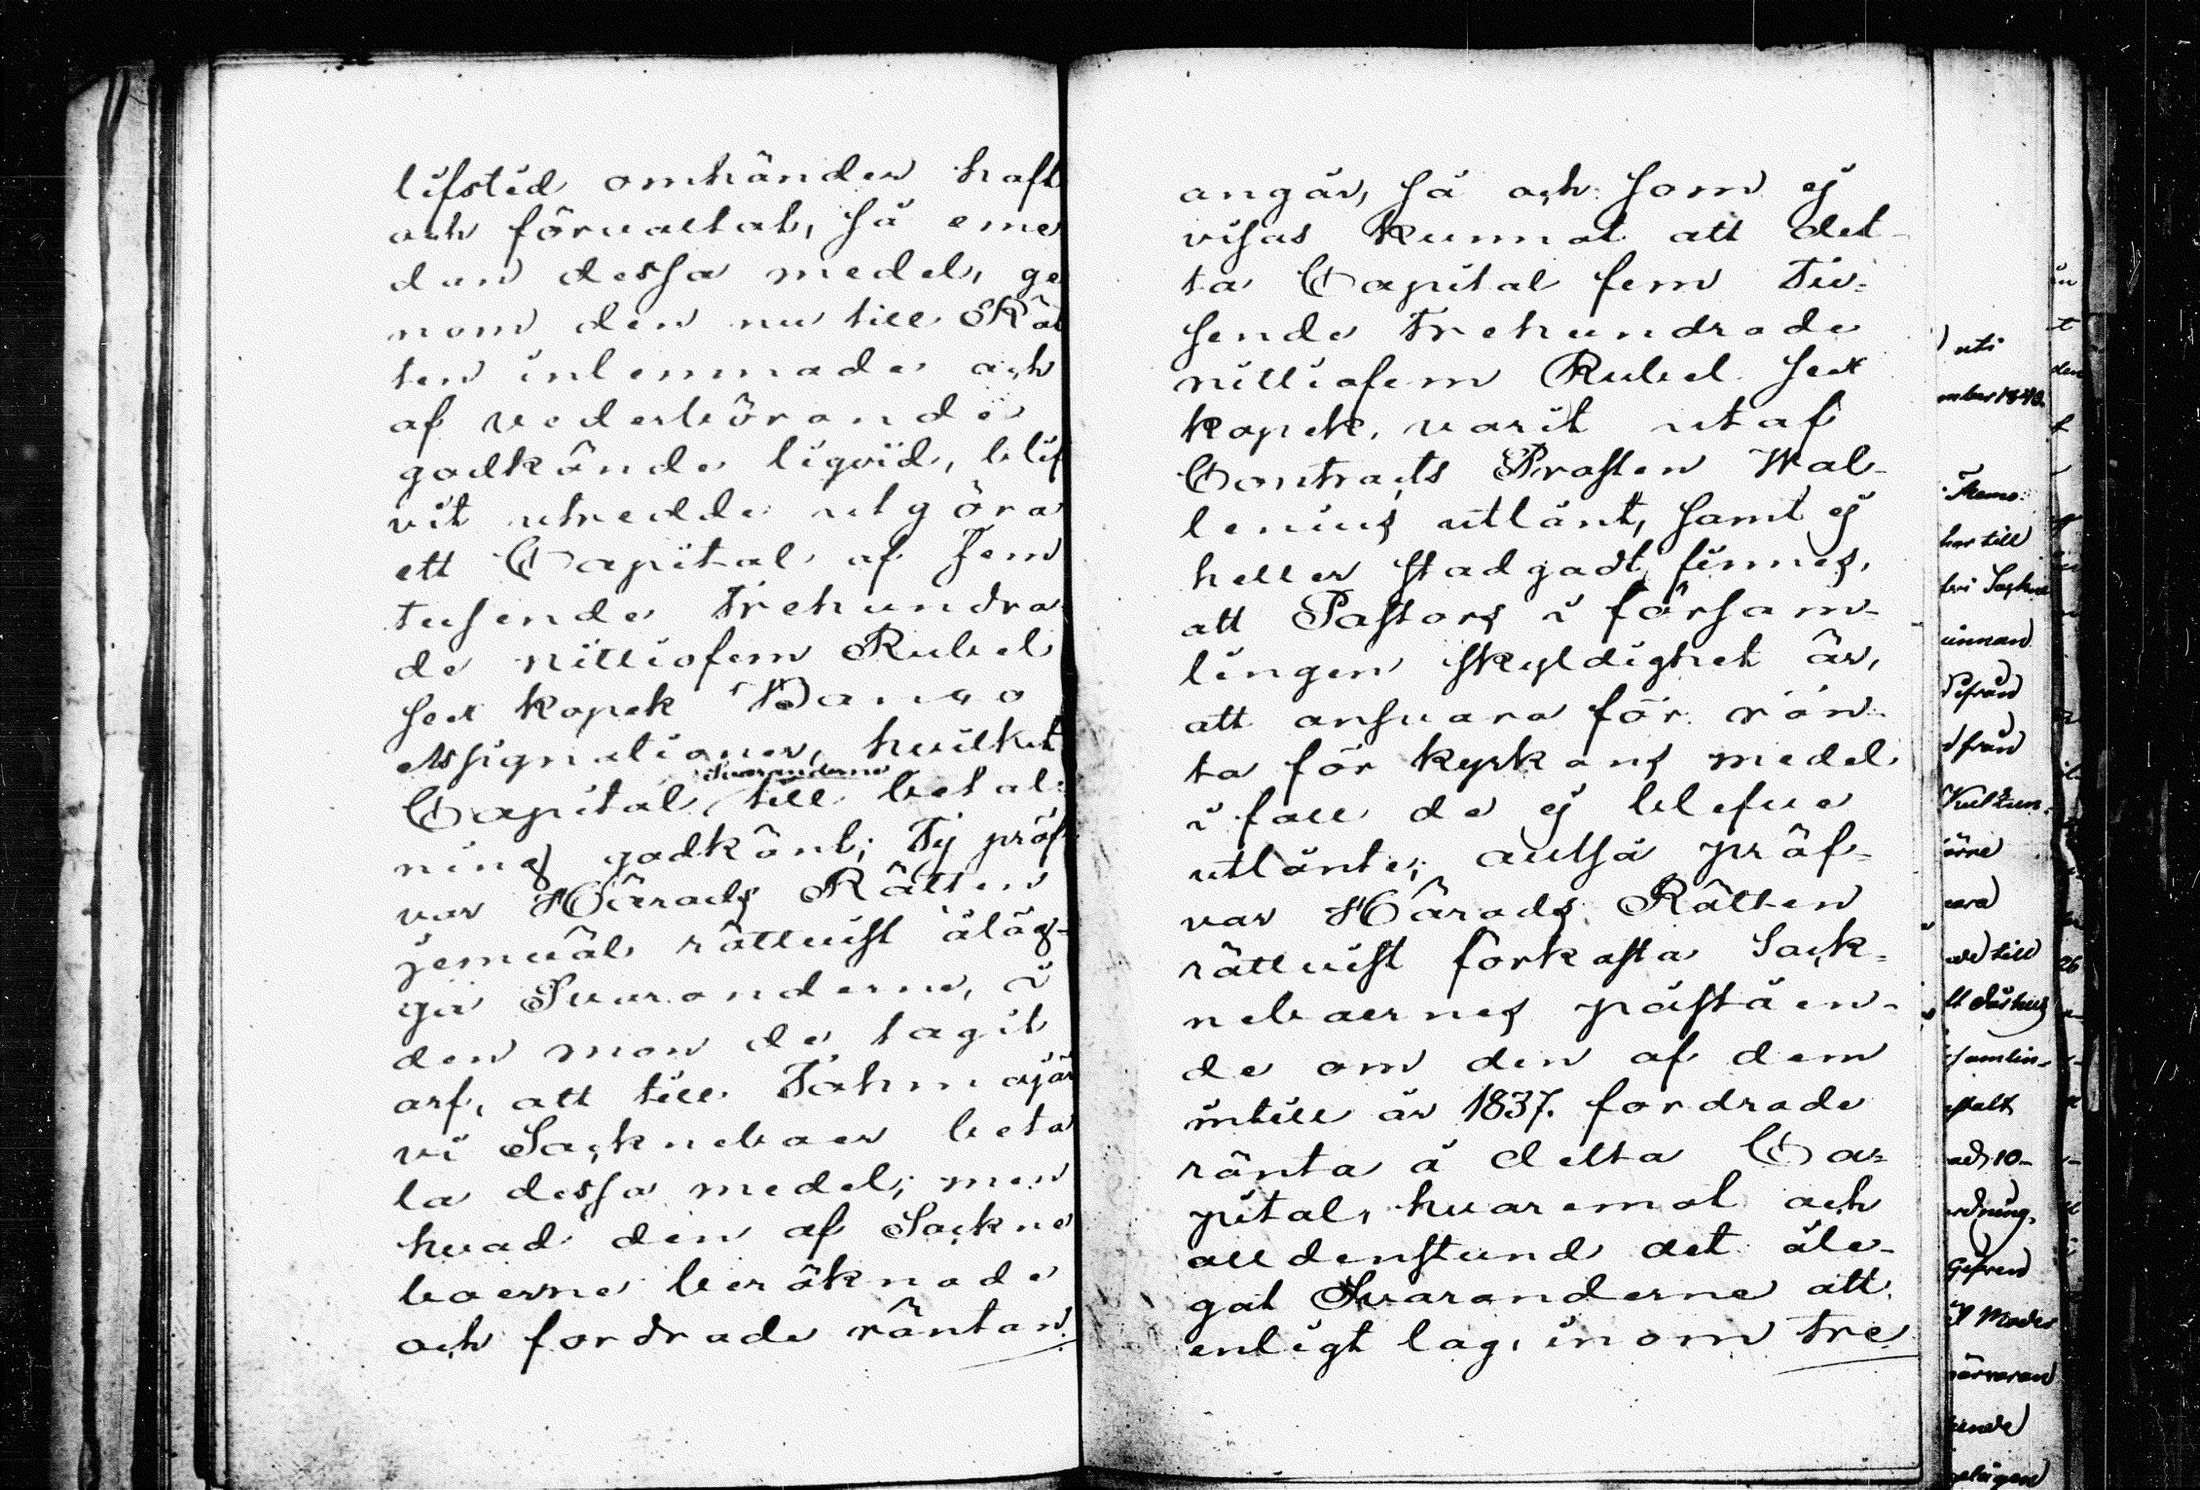 lifstid omhänder haft
och förvaltat, så eme
dan dessa medel, ge
nom den nu till Rät
ten inlemnade och
af vederbörande
godkände liqvid, blif
vit utredde utgöra
ett Capital af Fem
tusende Trehundra
de nittiofem Rubel
sex kopek Banco
Assignationer, hvilket
Svaranderne
Capital till betal
ning godkänt; Ty pröf
var Härads Rätten
jemväl rättvist åläg-
ga Svaranderne, i
den mon de tagit
arf, att till Tohmajär
vi Sockneboer beta
la dessa medel; men
hvad den af Sockne
boerne beräknade
och fordrade räntan
angår, så och som ej
visas kunnat att det-
ta Capital fem Tu-
sende Trehundrade
nittiofem Rubel sex
kopek, varit utaf
Contracts Prosten Wal-
lenius utlånt, samt ej
heller stadgadt finnes,
att Pastors i försam-
lingen skyldighet är,
att ansvara för rän-
ta för kyrkans medel
i fall de ej blefve
utlånte; alltså pröf-
var Härads Rätten
rättvist förkasta Sock-
neboernes påståen-
de om den af dem
intill år 1837. fordrade
ränta å detta Ca-
pital, hvaremot och
alldenstund det åle-
gat Svaranderne att
enligt lag, inom tre
uti
mber 1840.
har till
innan
ifrån
från
till
samlin-
ad 10-